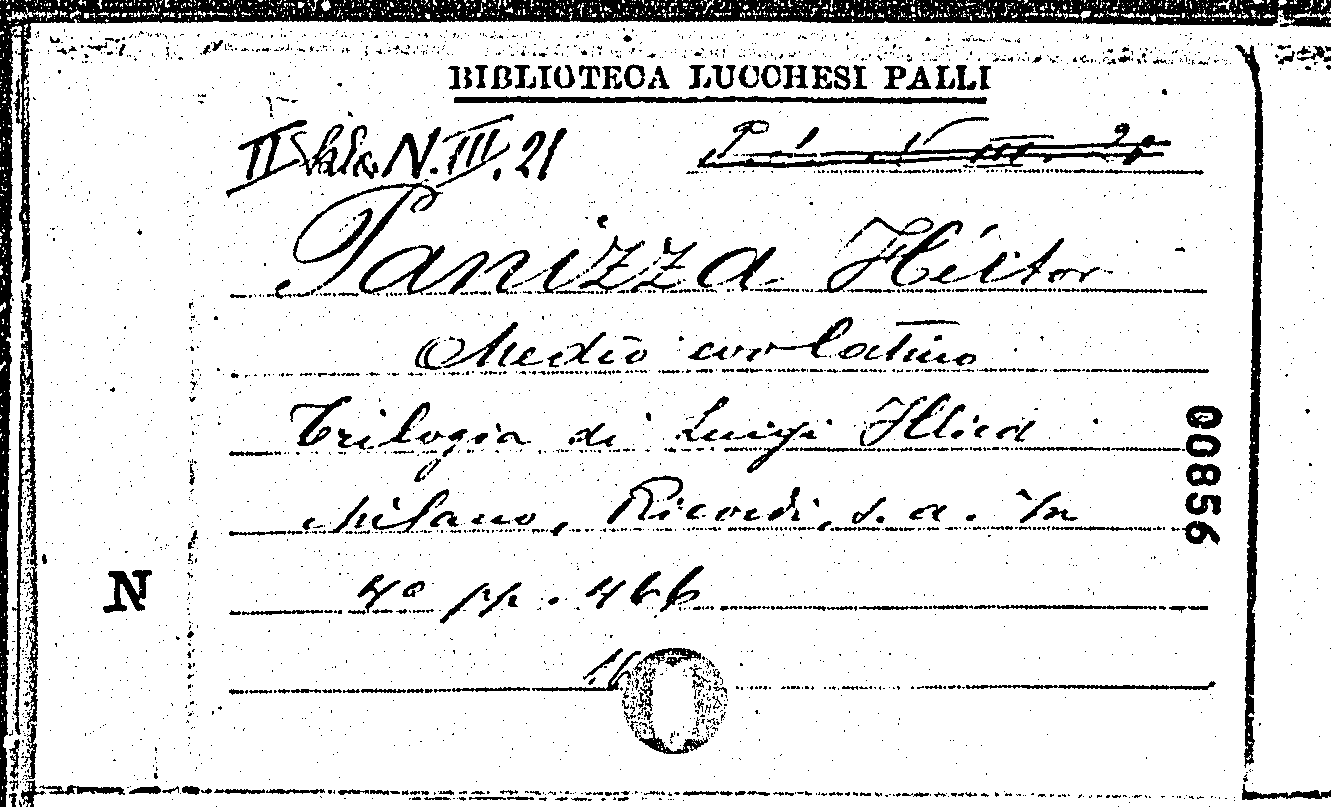 BIBLIOTECA LUCCHESI PALLI
II Sala N. III. 21
Panizza Héctor
Medio evo latino
Trilogia di Luigi Illica
Milano, Ricordi, s. a. in
4º pp. 466
N
00856